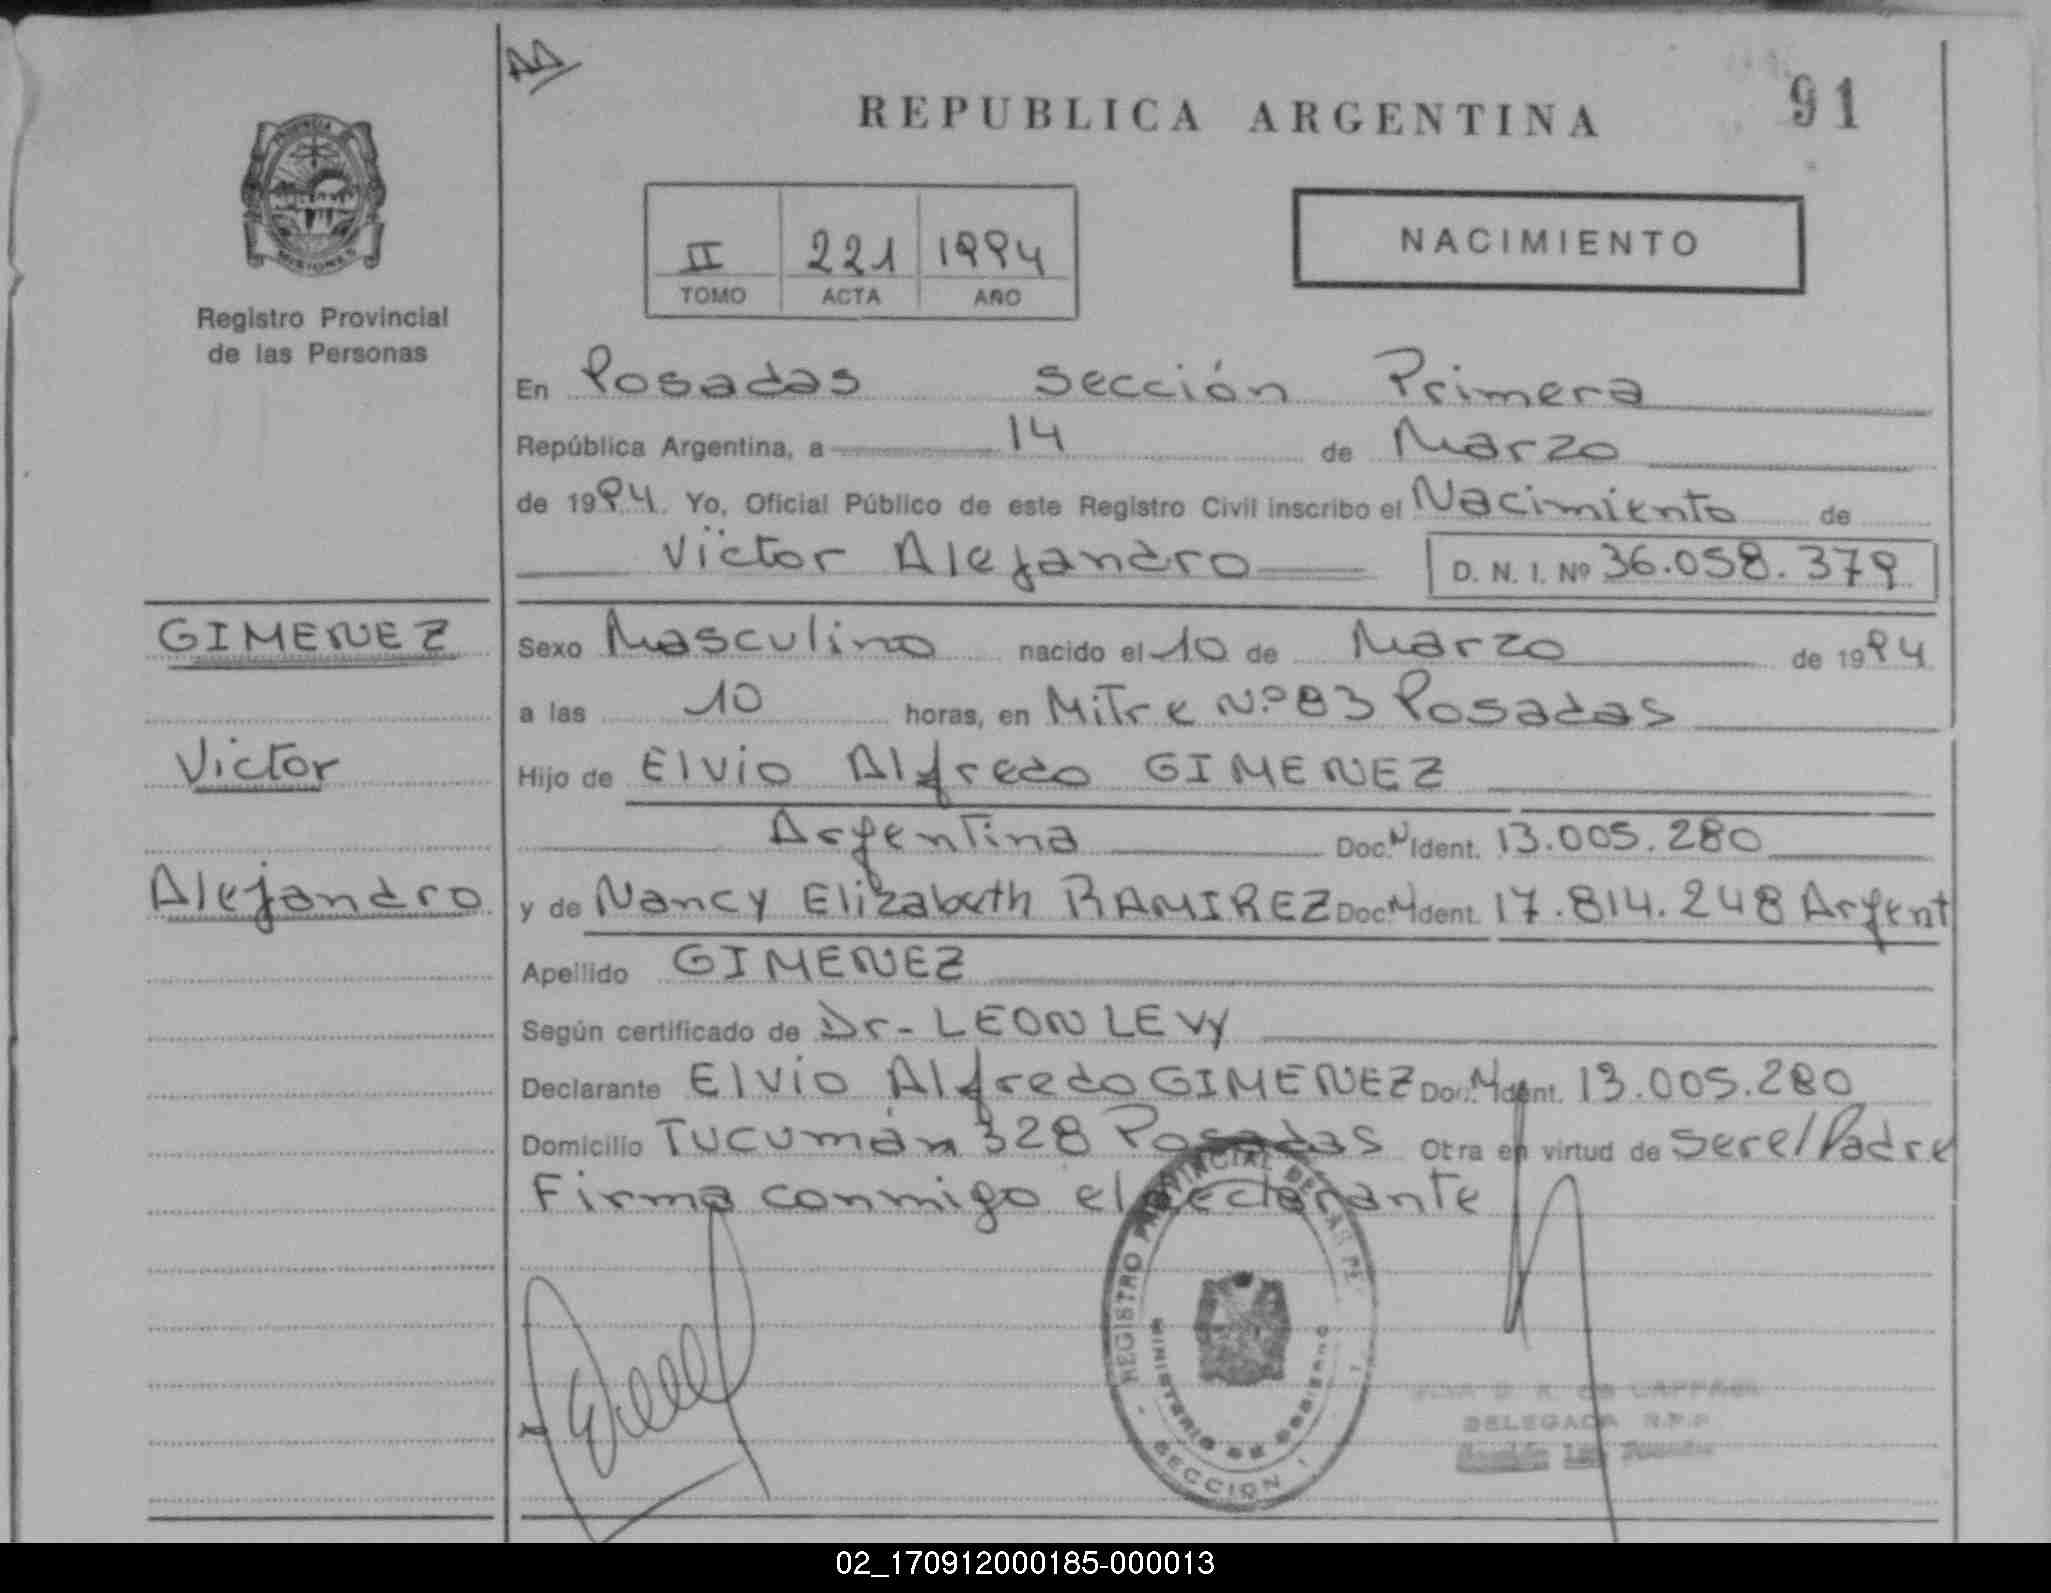 91
REPUBLICA ARGENTINA
PROVINCIA
MISIONES
Registro Provincial
de las Personas
II 221 1994
TOMO ACTA AÑO
NACIMIENTO
En Posadas sección Primera
República Argentina, a 14 de Marzo
de 1994. Yo, Oficial Público de este Registro Civil inscribo el Nacimiento de
Victor Alejandro D. N. I. Nº 36.058.379
GIMENEZ Sexo Masculino nacido el 10 de Marzo de 1994
a las 10 horas, en Mitre Nº 83 Posadas
Victor Hijo de Elvio Alfredo GIMENEZ
Argentina Doc.N Ident. 13.005.280
Alejandro y de Nancy Elizabeth RAMIREZ Doc.N Ident. 17.814.248 Argent
Apellido GIMENEZ
Según certificado de Dr- LEON LEVY
Declarante Elvio Alfredo GIMENEZ Doc.N Ident. 13.005.280
Domicilio Tucumán 328 Posadas Otra en virtud de ser el Padre
Firma conmigo el declarante
REGISTRO PROVINCIAL DE LAS PE
MINISTERIO DE GOBIERNO
SECCION 1
DELEGADA R.P.P
02_170912000185-000013